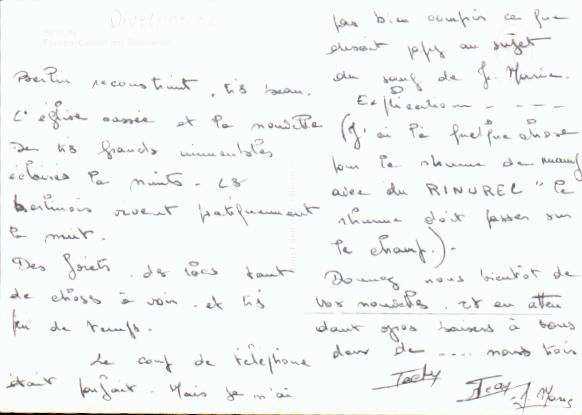 BERLIN
Berlin reconstruit, très beau.
L'église cassée et la nouvelle
De très grands immeubles
éclairés la nuits. Les
berlinois vivent pratiquement
la nuit.
Des forêts, des lacs tant
de choses à voir et très
peu de temps.
Le coup de téléphone
était parfait. Mais je n'ai
pas bien compris ce que
disait papy au sujet
du sang de J. Marie.
Explication - - - -
(J'ai là quelque chose
pour le rhume de
avec du RINUREL " le
rhume doit passer sur
le champ.) -
Donnez nous bientôt de
vos nouvelles. Et en atten
dant gros baisers à tous
deux de .... nous trois
J. Marie